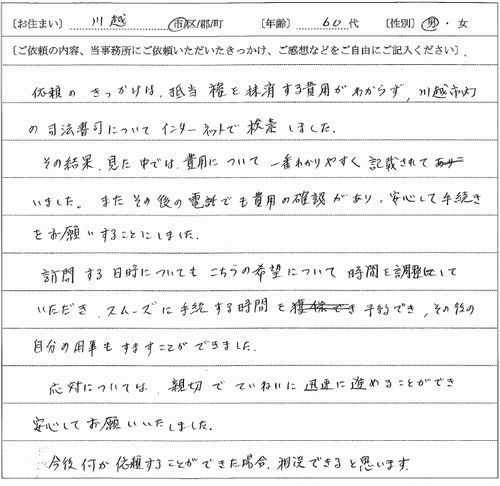 ［お住まい］ 川越 市区/郡/町 ［年齢］ 60 代 ［性別］ 男 ・ 女
［ご依頼の内容、当事務所にご依頼いただいたきっかけ、ご感想などをご自由にご記入ください］
依頼のきっかけは、抵当権を抹消する費用がわからず、川越市内
の司法書司についてインターネットで検索しました。
その結果、見た中では、費用について一番わかりやすく記載されて
いました。またその後の電話でも費用の確認があり、安心して手続き
をお願いすることにしました。
訪問する日時についてもこちらの希望について時間を調整して
いただき、スムーズに手続する時間を予約でき、その後の
自分の用事もすますことができました。
応対については、親切でていねいに迅速に進めることができ
安心してお願いいたしました。
今後何か依頼することができた場合、相談できると思います。